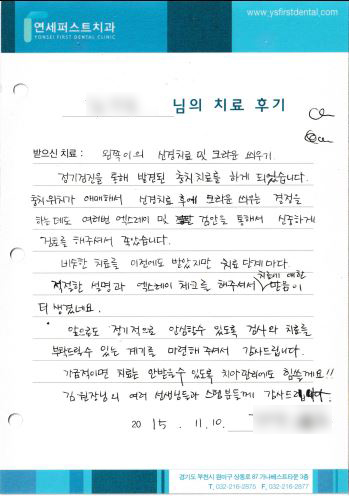 www.ysfirstdental.com
연세퍼스트치과
YONSEI FIRST DENTAL CLINIC
님의 치료 후기
받으신 치료 : 왼쪽이의 신경치료 및 크라운 씌우기.
정기검진을 통해 발견된 충치치료를 하게 되었습니다.
충치위치가 애매해서 신경치료 후에 크라운 씌우는 결정을
하는데도 여러번 엑스레이 및 검안을 통해서 신중하게
치료를 해주셔서 좋았습니다.
비슷한 치료를 이전에도 받았지만 치료 단계마다
적절한 설명과 엑스레이 체크를 해주셔서 치료에 대한 믿음이
더 생겼네요.
앞으로도 정기적으로 안심할수 있도록 검사와 치료를
부탁드릴수 있는 계기를 마련해 주셔서 감사드립니다.
가급적이면 치료는 안받을수 있도록 치아관리에도 힘쓸게요!!
김원장님외 여러 선생님들과 스텝분들께 감사드립니다.
2015. 11. 10.
경기도 부천시 원미구 상동로 87 가나베스트타운 3층
T. 032-216-2875 F. 032-216-2877